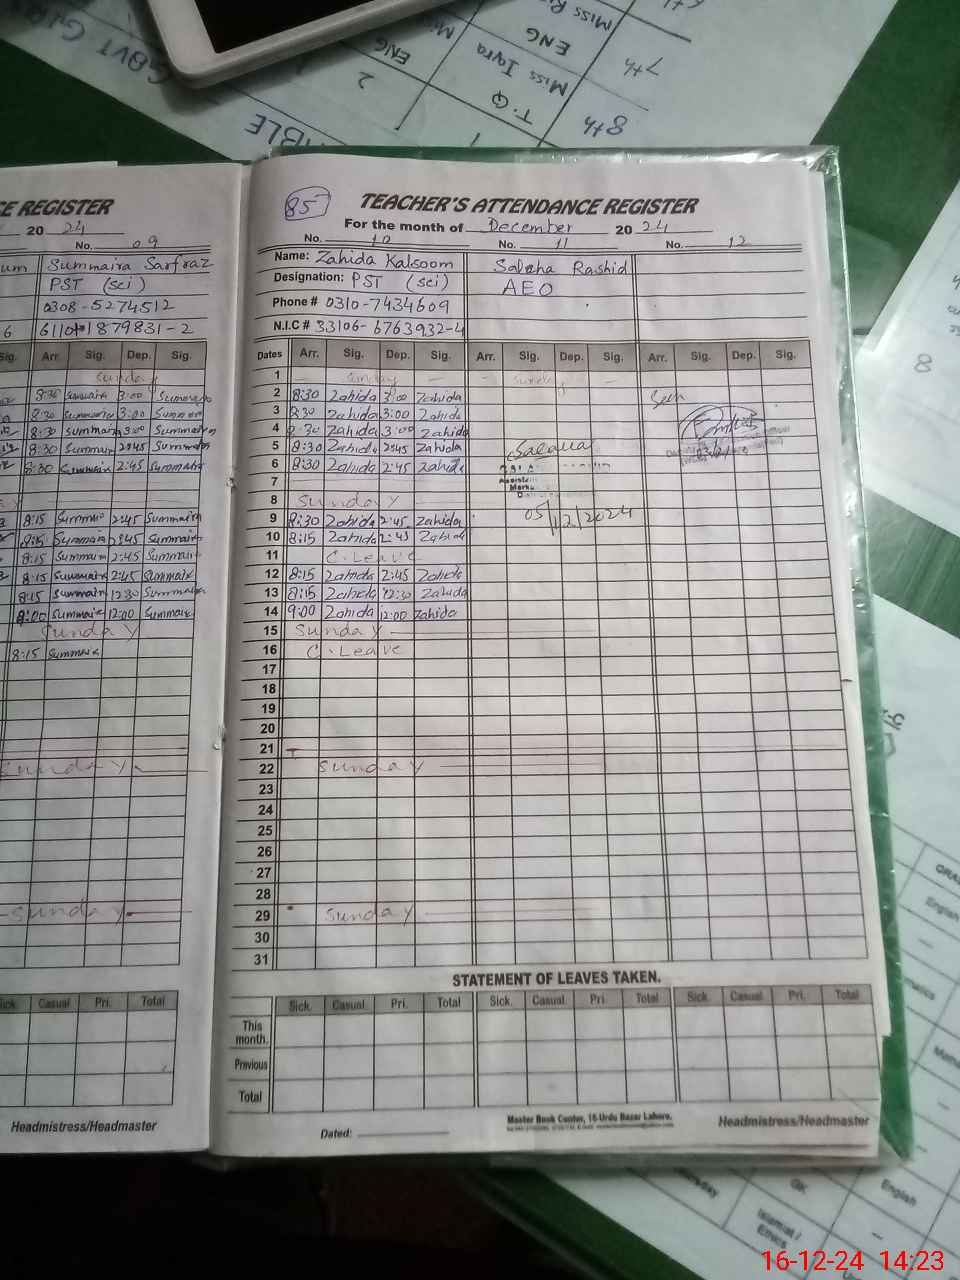 GOVT G
ENG
ENG
Miss Iqra
7th
2
T.Q
8th
1
CE REGISTER
20 24
No. 09
um Summaira Sarfraz
PST (sci)
0308-5274512
6
Sig. Arr. Sig. Dep. Sig.
Sunday
3:00
8:30 Summaira 3:00
8:30 Summaira 3:00
8:30 2:45
8:30 2:45
8:15 2:45 Summaira
8:15 Summaira 2:45
8:15 Summaira 2:45
8:15 Summaira 2:45
8:15 Summaira 12:30
8:00 Summaira 12:00
Sunday
8:15 Summaira
Sunday
Sunday
Sick. Casual Pri. Total
Headmistress/Headmaster
85
TEACHER'S ATTENDANCE REGISTER
For the month of December 20 24
No. 10 No. 11 No. 12
Name: Zahida Kalsoom Saleha Rashid
Designation: PST (sci) AEO
Phone # 0310-7434609
N.I.C # 33106-6763932-4
Dates Arr. Sig. Dep. Sig. Arr. Sig. Dep. Sig. Arr. Sig. Dep. Sig.
1 — Sunday — - Sunday -
2 8:30 Zahida 3:00 Zahida Seen
3 8:30 Zahida 3:00 Zahida
4 8:30 Zahida 3:00 Zahida
5 8:30 Zahida 2:45 Zahida
6 8:30 Zahida 2:45 Zahida
7
8 Sunday
9 8:30 Zahida 2:45 Zahida 05/12/2024
10 8:15 Zahida 2:45 Zahida
11 C. Leave
12 8:15 Zahida 2:45 Zahida
13 8:15 Zahida 12:30 Zahida
14 9:00 Zahida 12:00 Zahida
15 Sunday
16 C. Leave
17
18
19
20
21
22 Sunday
23
24
25
26
27
28
29 Sunday
30
31
STATEMENT OF LEAVES TAKEN.
Sick. Casual Pri. Total Sick. Casual Pri. Total Sick. Casual Pri. Total
This month.
Previous
Total
Dated:
Master Book Center, 16-Urdu Bazar Lahore.
Headmistress/Headmaster
8
English
GK
English
Islamiat / Ethics
16-12-24 14:23